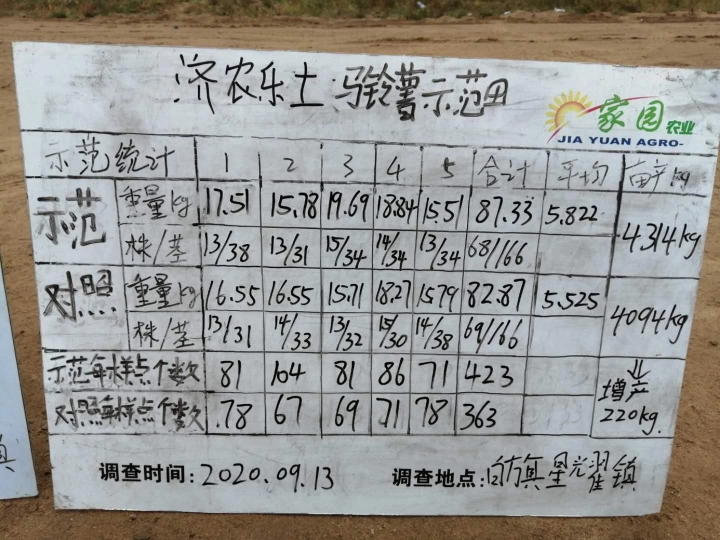 济农乐土 马铃薯示范田
家园农业
JIA YUAN AGRO-
示范统计 1 2 3 4 5 合计 平均 亩产kg
示范 重量kg 17.51 15.78 19.69 18.84 15.51 87.33 5.822 4314kg
株/茎 13/38 13/31 15/34 14/34 13/34 68/166
对照 重量kg 16.55 16.55 15.71 18.27 15.79 82.87 5.525 4094kg
株/茎 13/31 14/33 13/32 15/30 14/38 69/166
示范每样点个数 81 104 81 86 71 423
对照每样点个数 78 67 69 71 78 363
增产
220kg.
调查时间: 2020.09.13 调查地点: 旗星耀镇